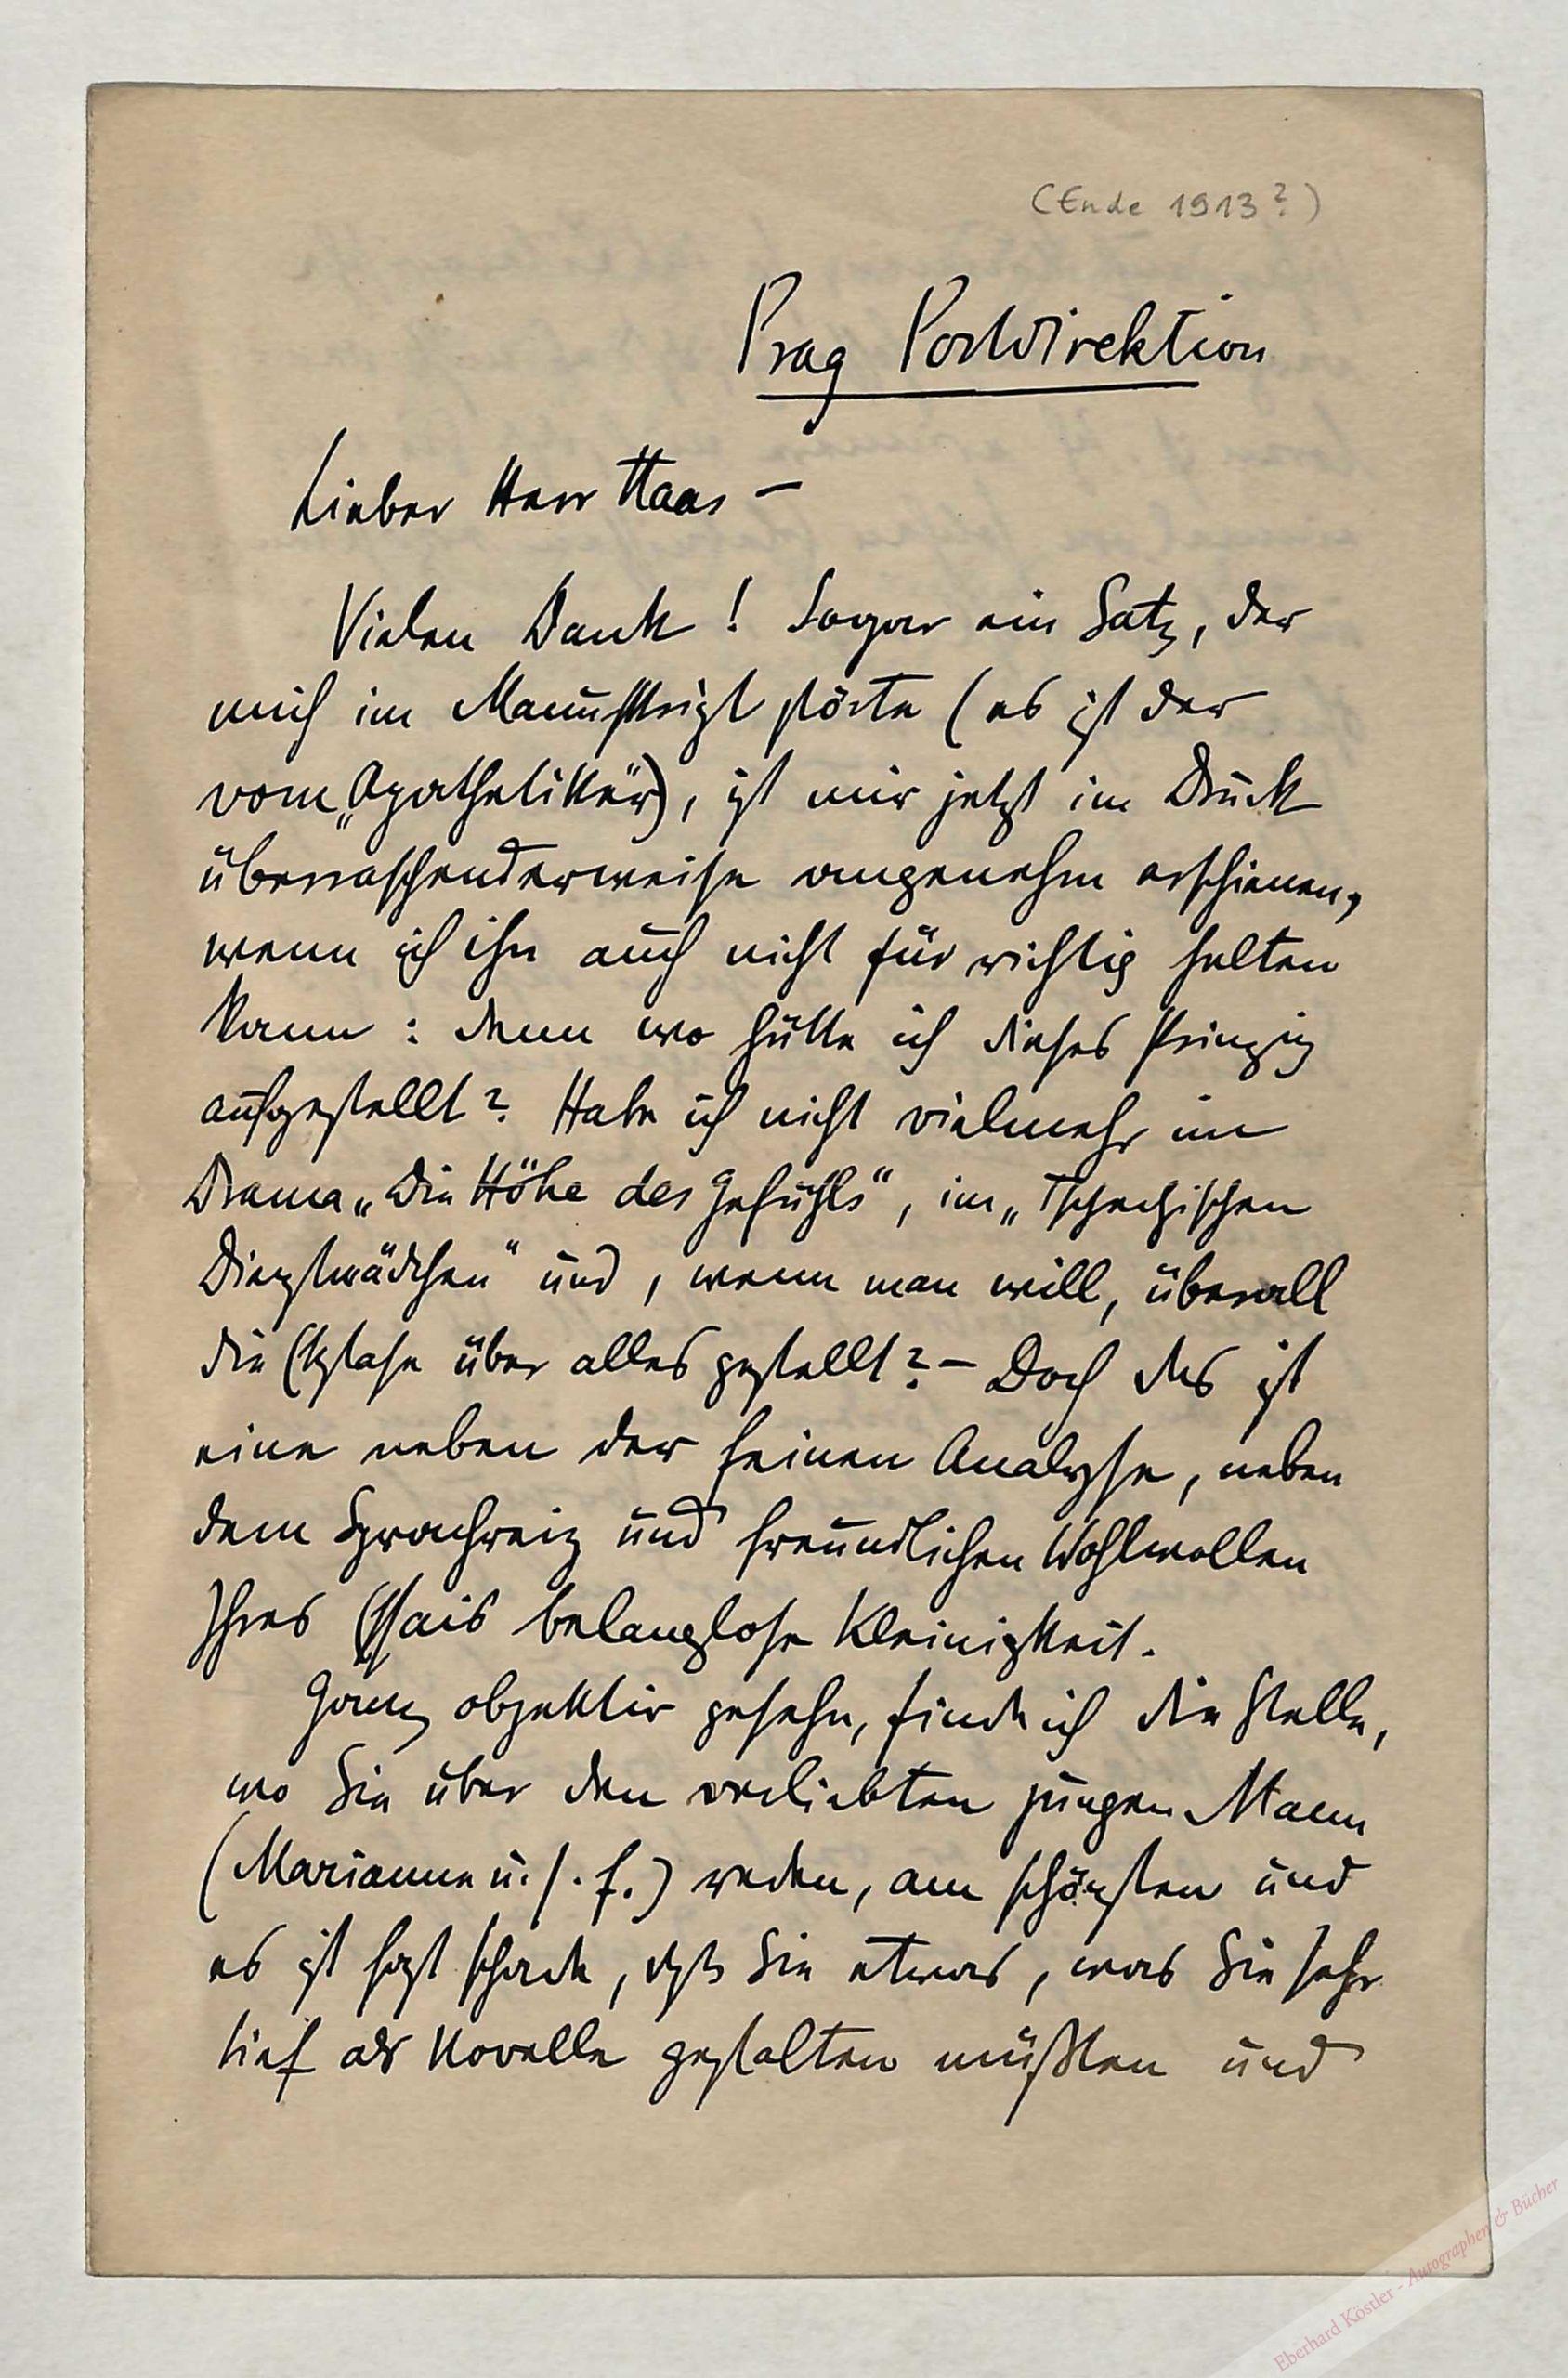 (Ende 1913?)
Prag Postdirektion
Lieber Herr Haas –
Vielen Dank! Sogar ein Satz, der
mich im Manuskript störte (es ist der
vom „Apathetiker"), ist mir jetzt im Druck
überraschenderweise angenehm erschienen,
wenn ich ihn auch nicht für richtig halten
kann: denn wo hätte ich dieses Prinzip
aufgestellt? Habe ich nicht vielmehr im
Drama „Die Höhe des Gefühls“, im „Tschechischen
Dienstmädchen“ und, wenn man will, überall
die Ekstase über alles gestellt? – Doch das ist
eine neben der feinen Analyse, neben
dem Sprachreiz und freundlichen Wohlwollen
Ihres Essais belanglose Kleinigkeit.
Ganz objektiv gesehn, finde ich die Stelle,
wo Sie über den verliebten jungen Mann
(Marianne u. s. f.) reden, am schönsten und
es ist fast schade, daß Sie etwas, was Sie sehr
tief als Novelle gestalten müßten und
Eberhard Köstler - Autographen & Bücher